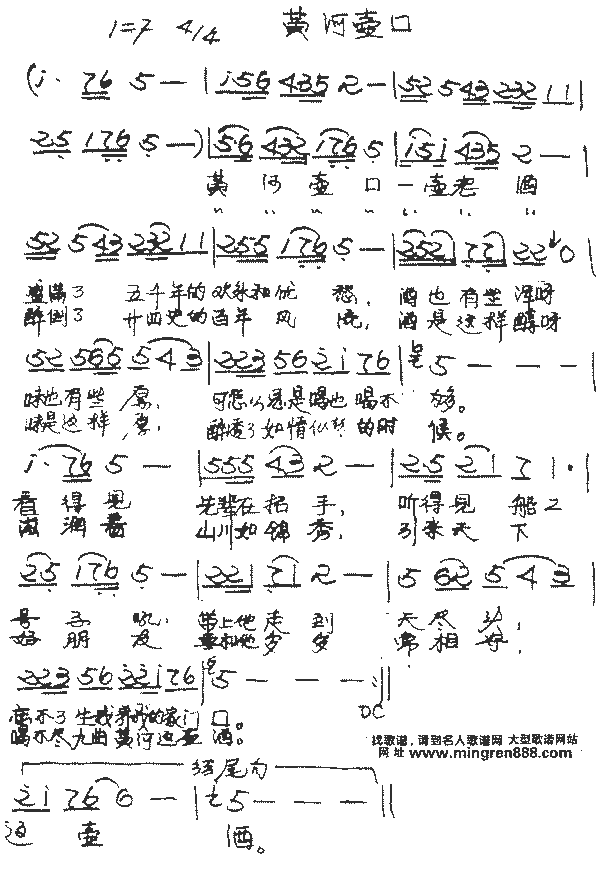 1=7 4/4 黄河壶口
(i· 76 5 — | i56 435 2 — | 52 543 232 11 |
25 176 5 —) | 56 432 176 5 | i5i 435 2 — |
黄河壶口一壶老酒
52 543 232 11 | 255 176 5 — | 252 77 22 0 |
盛满了 五千年的欢乐和忧愁, 酒也有些浑呀
醉倒了 廿四史的百年风流, 酒是这样醇呀
52 565 5 4 3 | 223 56 2i 76 | 5 — — — |
味也有些厚, 可怎么总是喝也喝不够。
味是这样厚, 醉透了如情似 的时候。
i· 76 5 — | 555 43 2 — | 25 21 7 1· |
看得见 先辈在招手, 听得见 船工
滋润着 山川如锦秀, 引来天下
25 176 5 — | 22 71 2 — | 5 62 5 4 3 |
号子吼, 带上他走到 天尽头,
好朋友 岁岁 常相好,
223 56 22i 76 | 5 — — — :||
离不了生我养我的家门口。
喝不尽九曲黄河这壶酒。
DC
找歌谱,请到名人歌谱网 大型歌谱网站
网址 www.mingren888.com
结尾句
2i 76 6 — | 5 — — — ||
这壶 酒。